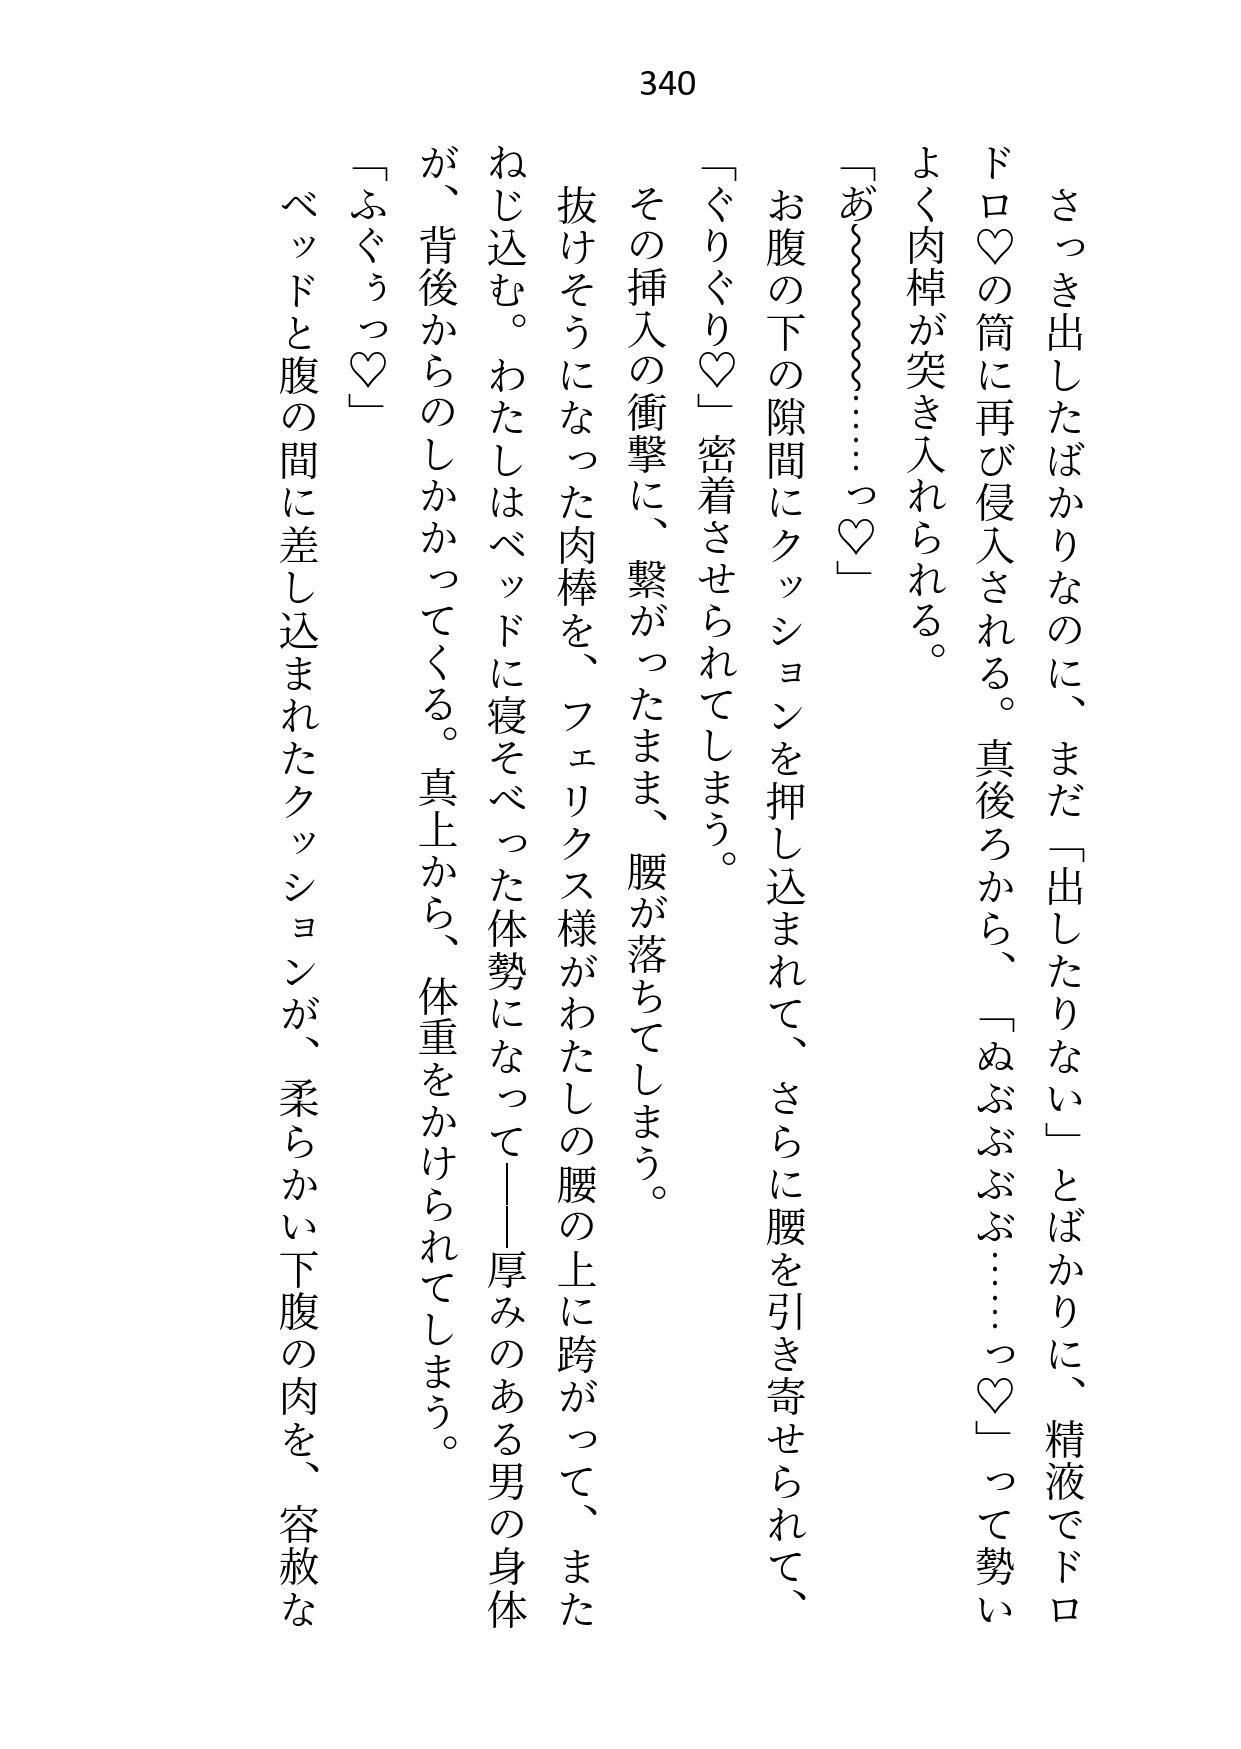 340
さっき出したばかりなのに、まだ「出したりない」とばかりに、精液でドロ
ドロ♡の筒に再び侵入される。真後ろから、「ぬぶぶぶぶ……っ♡」って勢い
よく肉棹が突き入れられる。
「あ゛〜〜〜〜〜〜……っ♡」
お腹の下の隙間にクッションを押し込まれて、さらに腰を引き寄せられて、
「ぐりぐり♡」密着させられてしまう。
その挿入の衝撃に、繋がったまま、腰が落ちてしまう。
抜けそうになった肉棒を、フェリクス様がわたしの腰の上に跨がって、また
ねじ込む。わたしはベッドに寝そべった体勢になって――厚みのある男の身体
が、背後からのしかかってくる。真上から、体重をかけられてしまう。
「ふぐぅっ♡」
ベッドと腹の間に差し込まれたクッションが、柔らかい下腹の肉を、容赦な